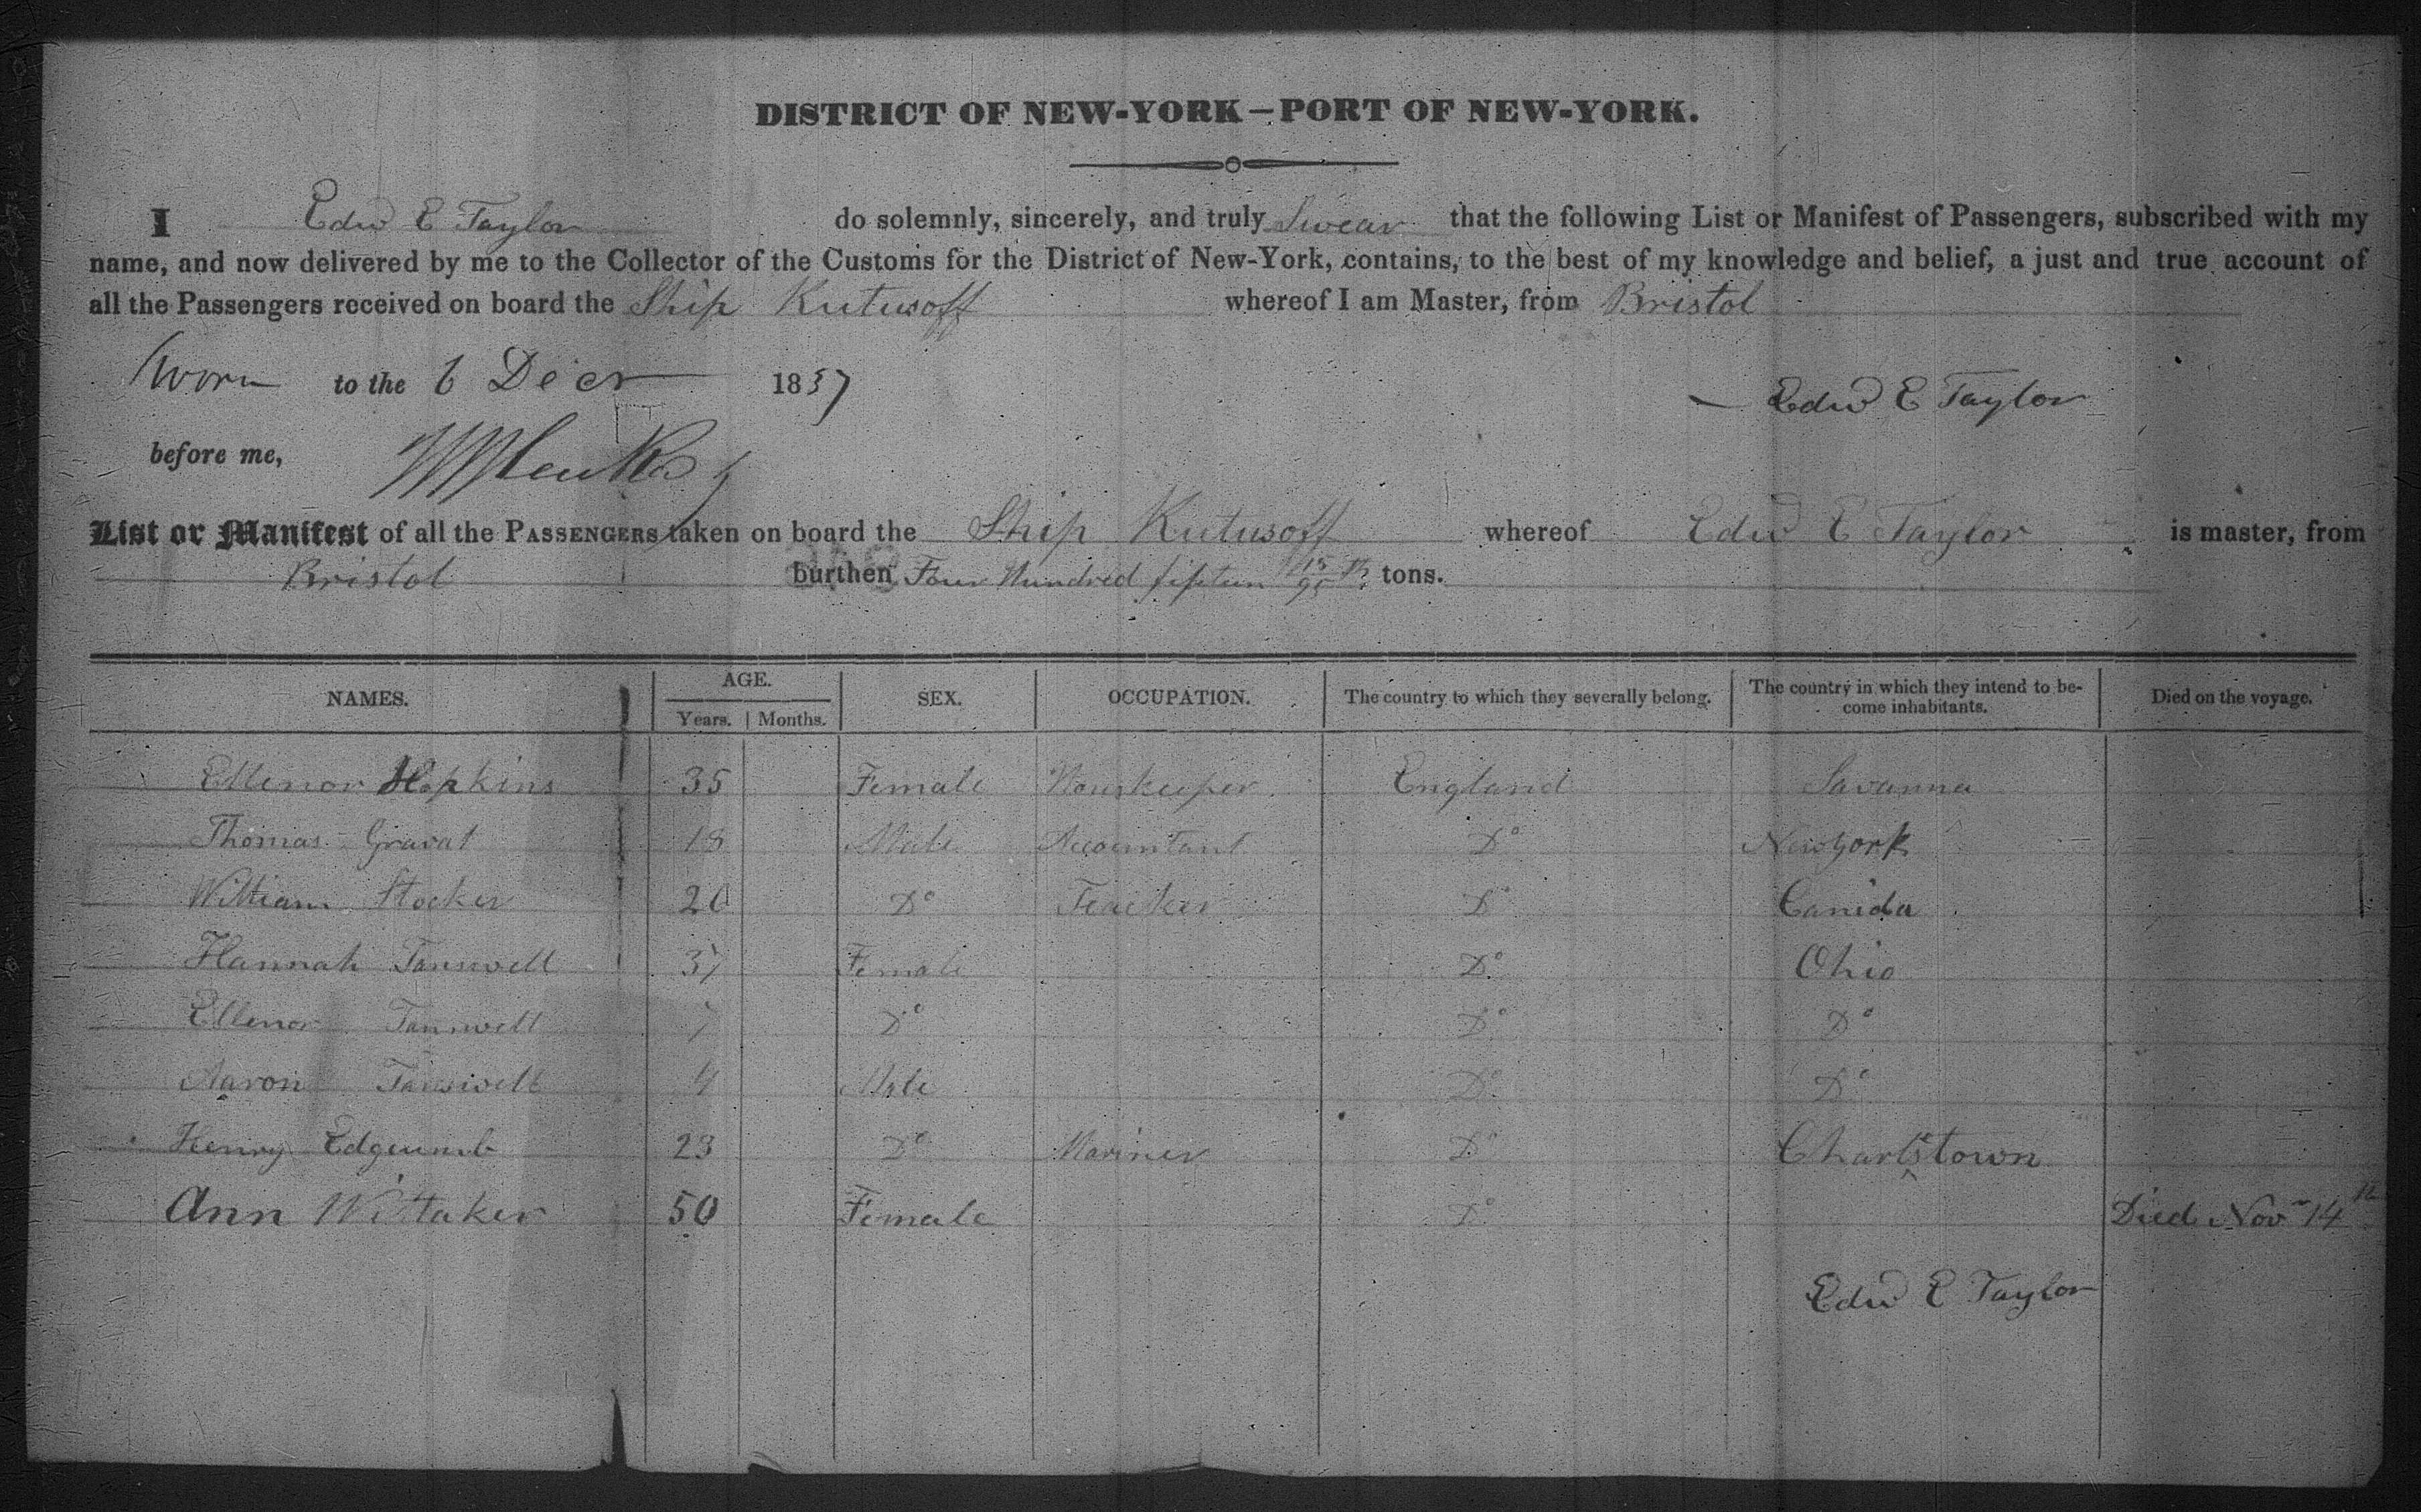 DISTRICT OF NEW-YORK – PORT OF NEW-YORK.
I Edwd E Taylor do solemnly, sincerely, and truly Swear that the following List or Manifest of Passengers, subscribed with my
name, and now delivered by me to the Collector of the Customs for the District of New-York, contains, to the best of my knowledge and belief, a just and true account of
all the Passengers received on board the Ship Kutusoff whereof I am Master, from Bristol
Sworn to the 6 Decr 1837
Edwd E Taylor
before me,
List or Manifest of all the PASSENGERS taken on board the Ship Kutusoff whereof Edwd E Taylor is master, from
Bristol burthen Four Hundred fifteen 15/95 th tons.
NAMES. AGE. SEX. OCCUPATION. The country to which they severally belong. The country in which they intend to be- Died on the voyage.
Years. Months. come inhabitants.
Ellenor Hopkins 35 Female Houskeeper England Savanna
Thomas Gravat 18 Male Accountant Do Newyork
William Stocker 20 Do Teacher Do Canida
Hannah Tanswell 37 Female Do Ohio
Ellenor Tanswell 7 Do Do Do
Aaron Tanswell 4 Male Do Do
Henry Edgcumb 23 Do Mariner Do Charlstown
Ann Wittaker 50 Female Do Died Nov 14th
Edwd E Taylor